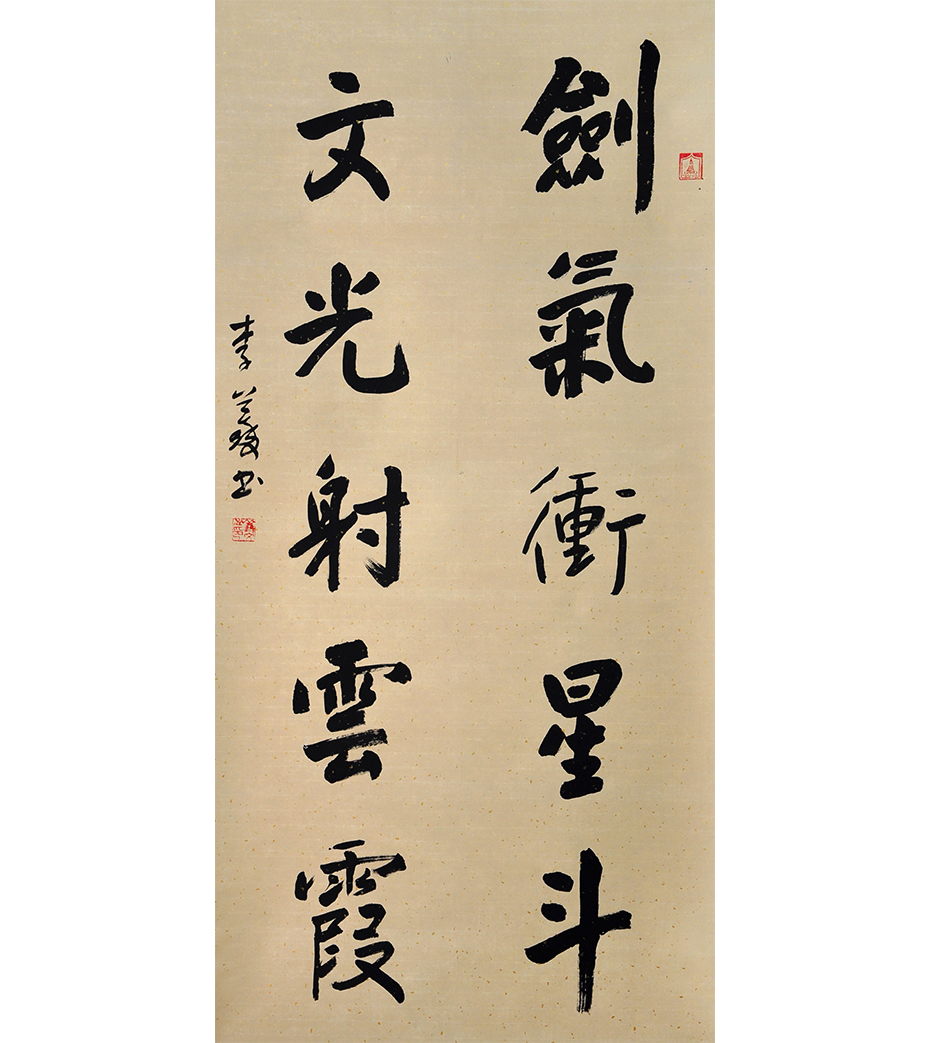 劍氣衝星斗
文光射雲霞
李義书